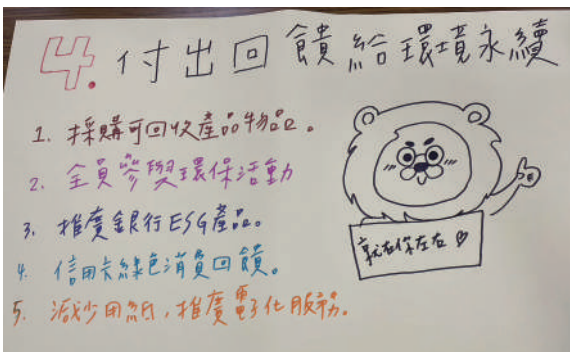 4. 付出回饋給環境永續
1. 採購可回收產品物品。
2. 全員參與環保活動
3. 推廣銀行ESG產品。
4. 信用卡綠色消費回饋。
5. 減少用紙，推廣電子化服務。
就在你左右♡